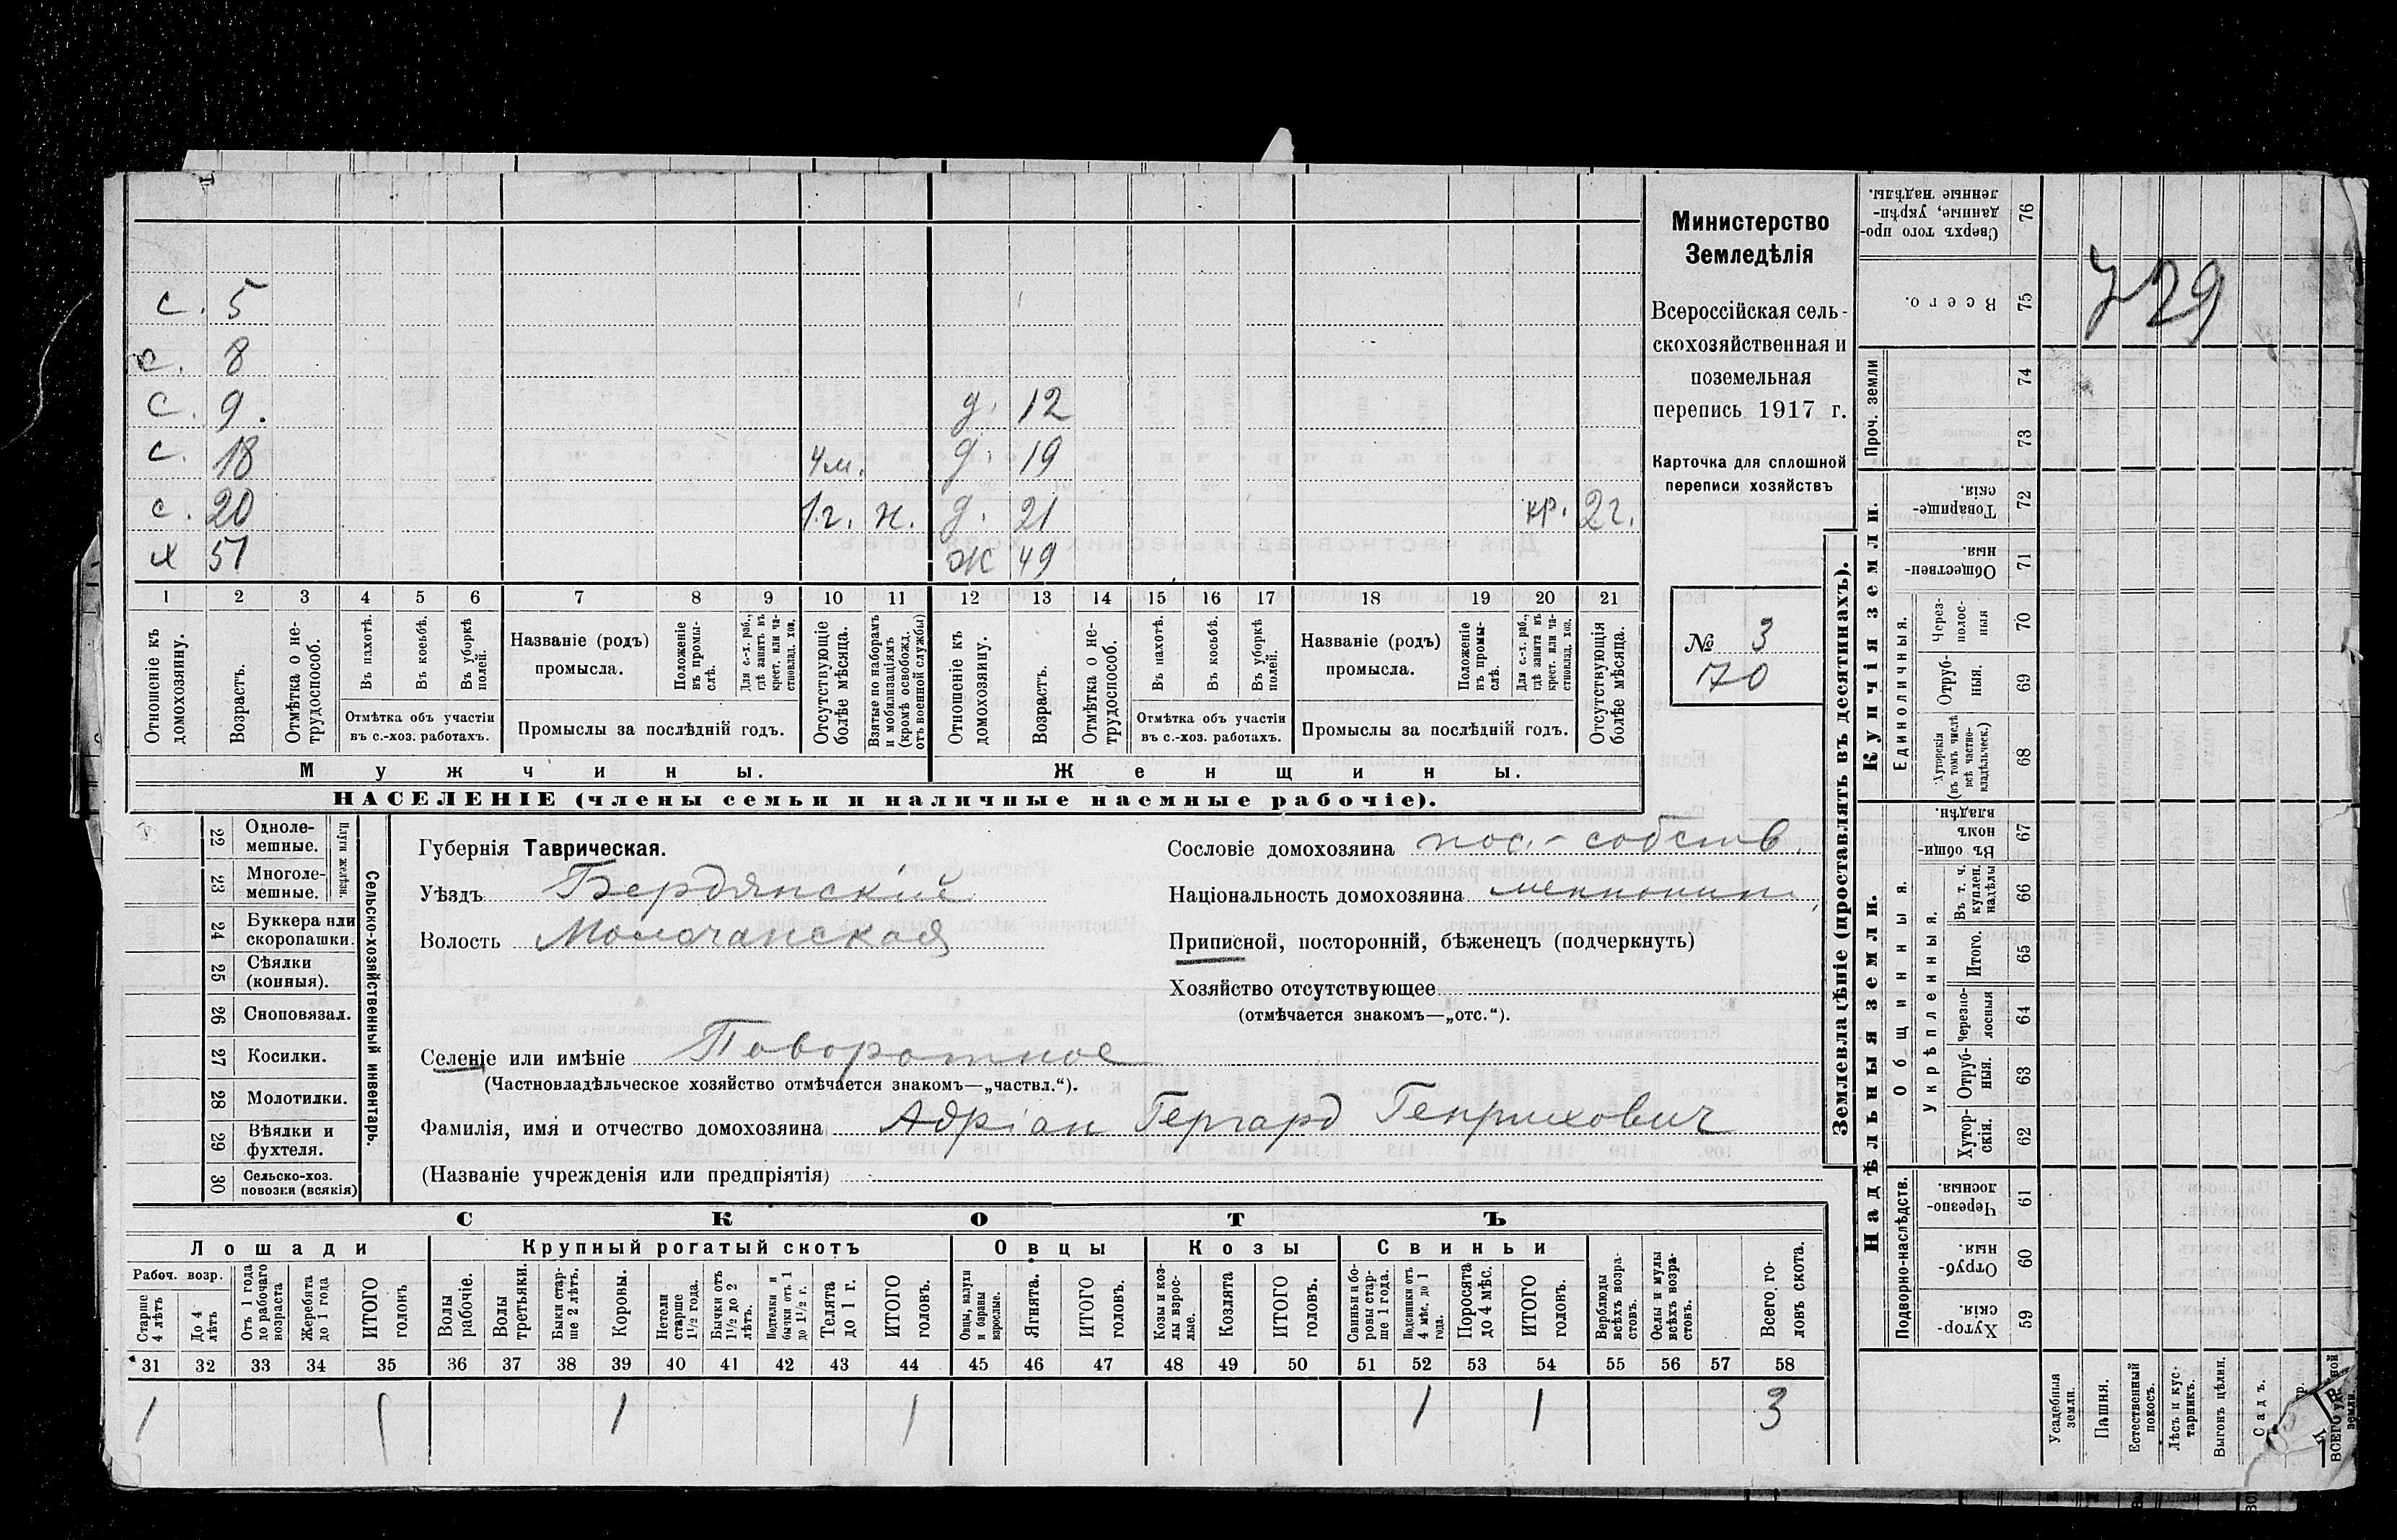 с. 5
с. 8
с. 9. д. 12
с. 18 4м. д. 19
с. 20 1 г. н. д. 21 кр. 2 г.
х 51 ж 49
1 2 3 4 5 6 7 8 9 10 11 12 13 14 15 16 17 18 19 20 21
Отношеніе къ домохозяину.
Возрастъ.
Отмѣтка о не-
трудоспособ.
Въ пахотѣ.
Въ косьбѣ.
Въ уборкѣ полей.
Отмѣтка объ участіи
въ с.-хоз. работахъ.
Названіе (родъ)
промысла.
Положеніе въ промы-
слѣ.
Для с.-х. раб., гдѣ занятъ въ крест. или ча-
стновлад. хоз.
Промыслы за послѣдній годъ.
Отсутствующіе болѣе мѣсяца.
Взятые по наборамъ и мобилизаціямъ (кромѣ освобожд. отъ военной службы)
Отношеніе къ домохозяину.
Возрастъ.
Отмѣтка о не-
трудоспособ.
Въ пахотѣ.
Въ косьбѣ.
Въ уборкѣ полей.
Отмѣтка объ участіи
въ с.-хоз. работахъ.
Названіе (родъ)
промысла.
Положеніе въ промы-
слѣ.
Для с.-х. раб., гдѣ занята въ крест. или ча-
стновлад. хоз.
Промыслы за послѣдній годъ.
Отсутствующія болѣе мѣсяца.
Мужчины.
Женщины.
НАСЕЛЕНІЕ (члены семьи и наличные наемные рабочіе).
Министерство
Земледѣлія
Всероссійская сель-
скохозяйственная и
поземельная
перепись 1917 г.
Карточка для сплошной
переписи хозяйствъ
№ 3
170
22 Одноле-
мешные.
23 Многоле-
мешные.
Плуги желѣзн.
24 Буккера или
скоропашки.
25 Сѣялки
(конныя).
26 Сноповязал.
27 Косилки.
28 Молотилки.
29 Вѣялки и
фухтеля.
30 Сельско-хоз.
повозки (всякія)
Сельско-хозяйственный инвентарь.
Губернія Таврическая.
Уѣздъ Бердянскій
Волость Молочанская
Селеніе или имѣніе Поворотное
(Частновладѣльческое хозяйство отмѣчается знакомъ—„частвл.“).
Фамилія, имя и отчество домохозяина Адріан Гергард Генрихович
(Названіе учрежденія или предпріятія)
Сословіе домохозяина пос.-собств.
Національность домохозяина меннонит,
Приписной, посторонній, бѣженецъ (подчеркнуть)
Хозяйство отсутствующее
(отмѣчается знакомъ—„отс.“).
СКОТЪ
Лошади
Крупный рогатый скотъ
Овцы
Козы
Свиньи
Рабоч. возр.
Старше 4 лѣтъ
До 4 лѣтъ
Отъ 1 года до рабочаго возраста
Жеребята до 1 года
ИТОГО головъ
Волы рабочіе.
Волы третьяки.
Быки стар-
ше 2 лѣтъ.
Коровы.
Нетели старше 1½ года.
Бычки отъ 1½ до 2 лѣтъ.
Подтелки и бычки отъ 1 до 1½ г.
Телята до 1 г.
ИТОГО головъ.
Овцы, валухи и бараны взрослые.
Ягнята.
ИТОГО головъ.
Козы и коз-
лы взрос-
лые.
Козлята
ИТОГО головъ.
Свиньи и бо-
ровы стар-
ше 1 года.
Подсвинки отъ 4 мѣс. до 1 года.
Поросята до 4 мѣс.
ИТОГО головъ.
Верблюды всѣхъ возра-
стовъ.
Ослы и мулы всѣхъ возра-
стовъ.
Всего го-
ловъ скота.
31 32 33 34 35 36 37 38 39 40 41 42 43 44 45 46 47 48 49 50 51 52 53 54 55 56 57 58
1 1 1 1 1 1 3
Землевладѣніе (проставлять въ десятинахъ).
Надѣльныя земли.
Купчія земли.
Проч. земли
Сверхъ того про-
данные, укрѣп-
ленные надѣлы.
76
Всего.
75
74
73
Товарище-
скія.
72
Обществен-
ныя.
71
Единоличныя.
Через-
полос-
ныя
70
Отруб-
ныя.
69
Хуторскія
(въ томъ числѣ
всѣ частно-
владѣльческ.)
68
Общинныя.
Въ общин-
номъ
владѣн.
67
Укрѣпленныя.
Въ т. ч.
куплен.
надѣлы
66
Итого.
65
Черезпо-
лосныя
64
Отруб-
ныя.
63
Хутор-
скія.
62
Подворно-наслѣдств.
Черезпо-
лосныя.
61
Отруб-
ныя.
60
Хутор-
скія.
59
Усадебныя земли.
Пашня.
Естественный покосъ.
Лѣсъ и кус-
тарникъ.
Выгонъ цѣлин.
Садъ.
729